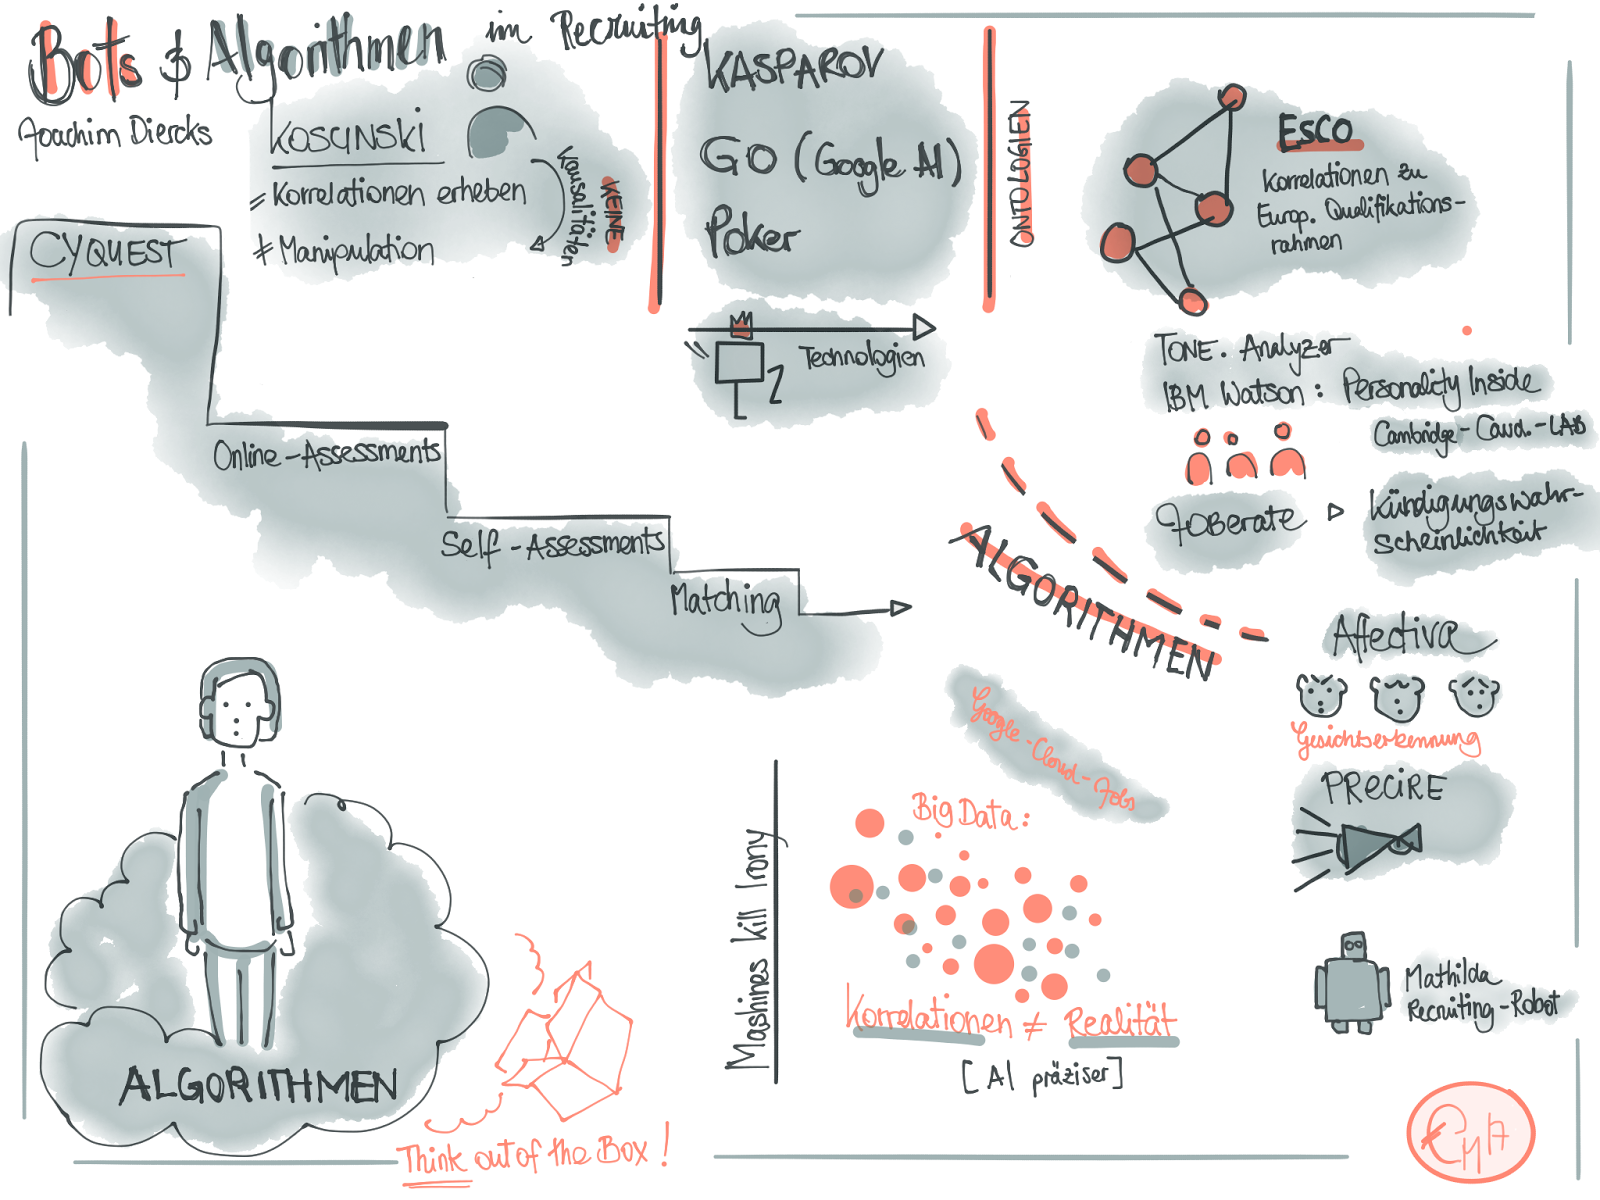 Bots & Algorithmen im Recruiting
Joachim Diercks
KOSCINSKI
= Korrelationen erheben
≠ Manipulation
KEINE
Kausalitäten
KASPAROV
GO (Google AI)
Poker
Technologien
ONTOLOGIEN
ESCO
Korrelationen zu
Europ. Qualifikations-
rahmen
CYQUEST
Online-Assessments
Self-Assessments
Matching
TONE. Analyzer
IBM Watson: Personality Inside
Cambridge-Caud.-LAB
JOBerate
Kündigungswahr-
scheinlichkeit
ALGORITHMEN
Affectiva
Gesichtserkennung
PRECIRE
Mathilda
Recruiting-Robot
Google-Cloud-Jobs
Big Data:
Korrelationen ≠ Realität
[AI präziser]
Mashines kill Irony
ALGORITHMEN
Think out of the Box!